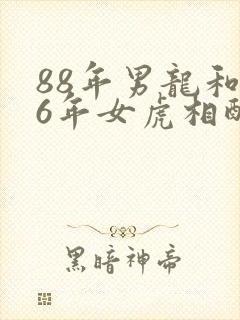 88年男龍和
6年女虎相配
黑暗神帝